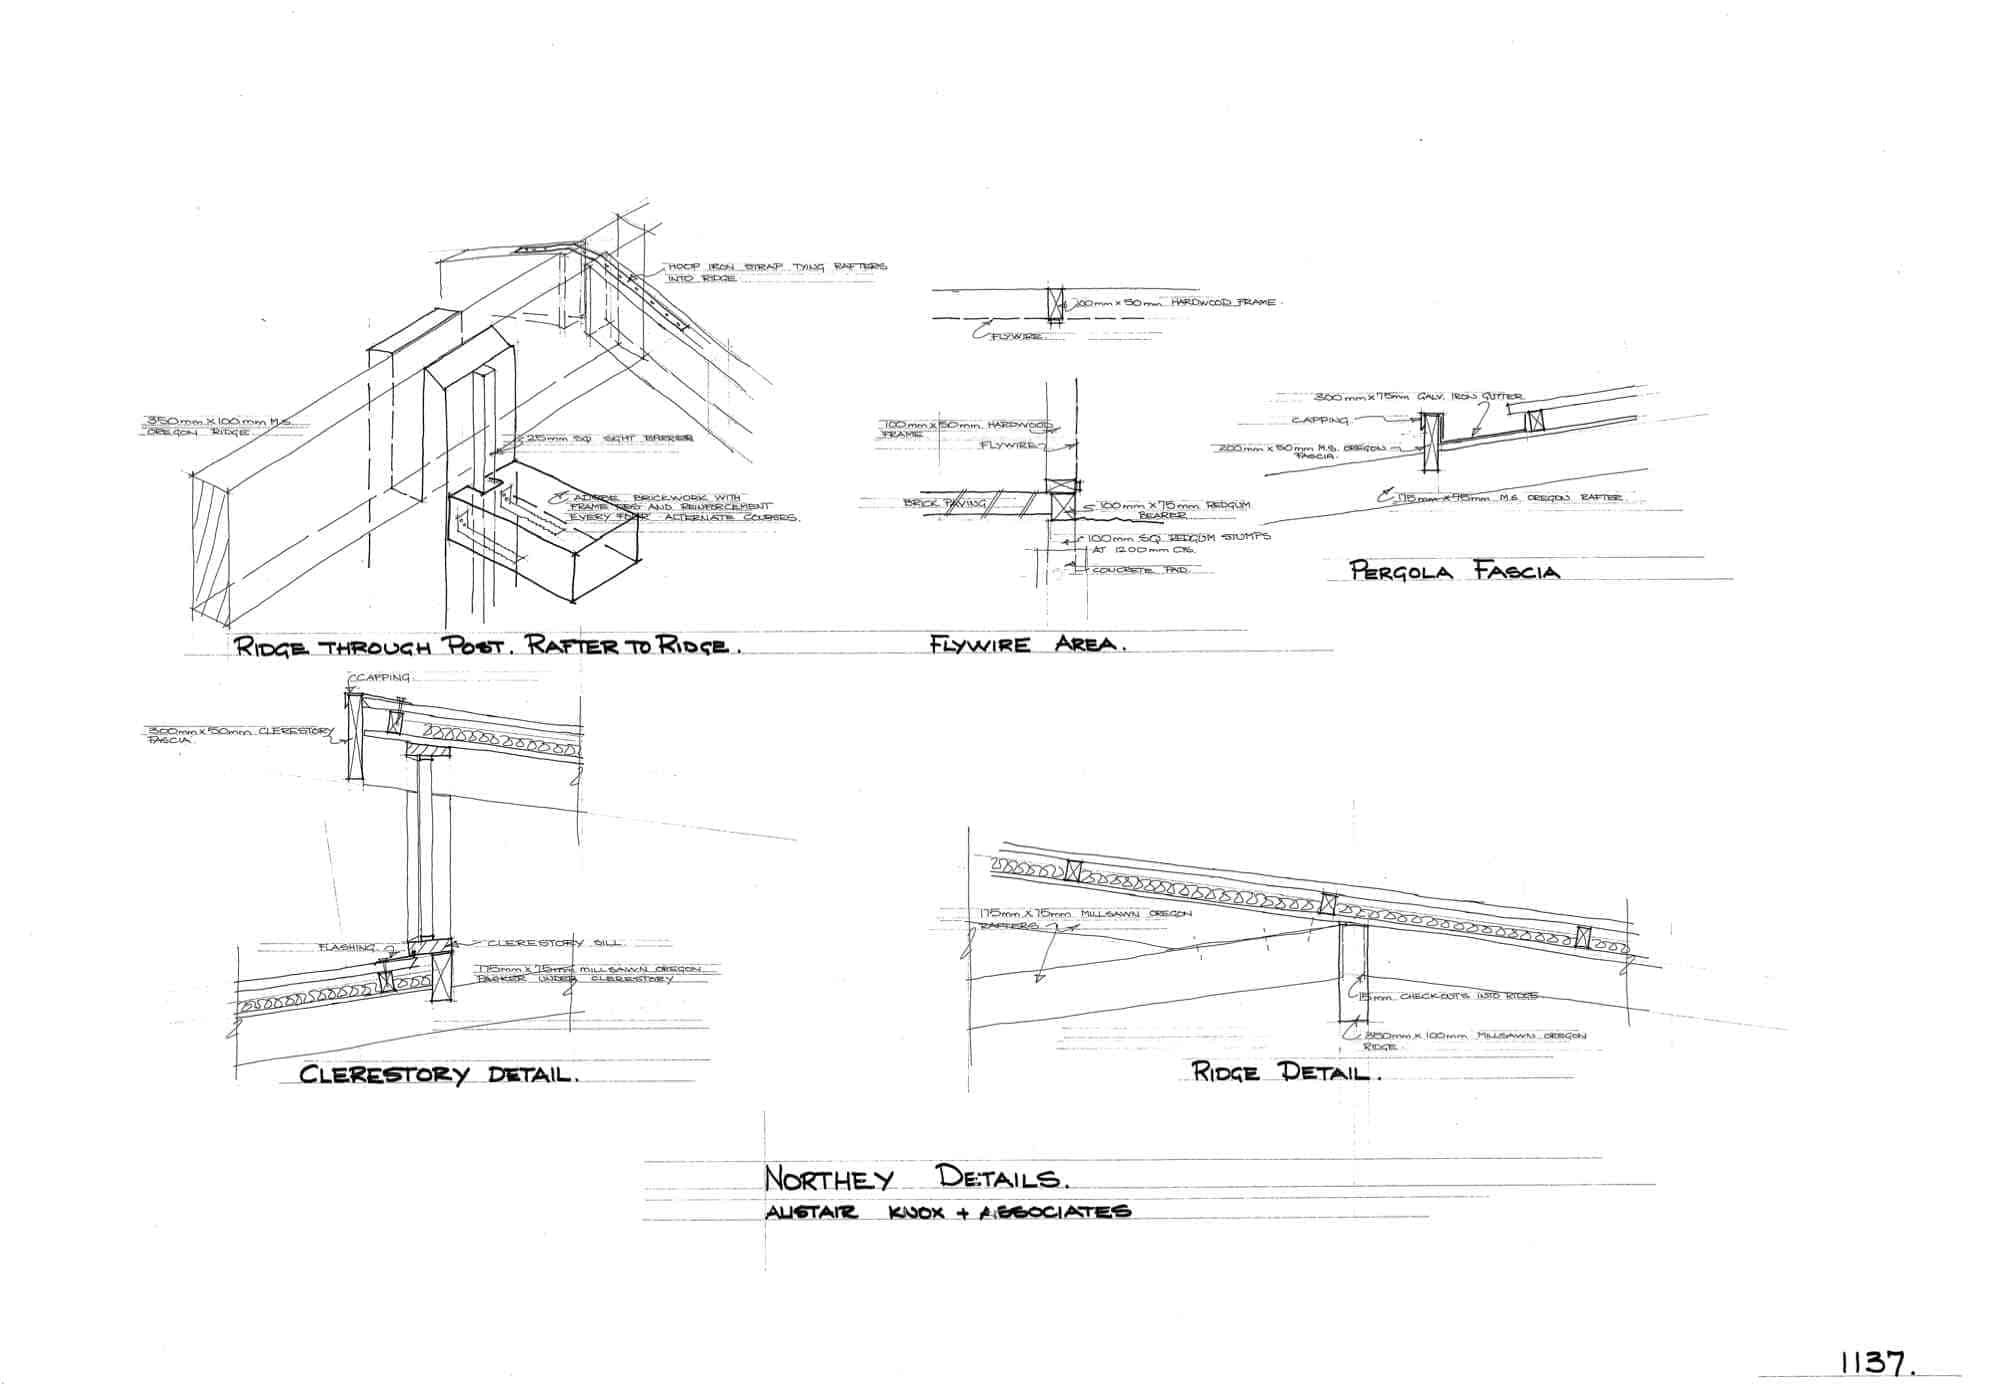 HOOP IRON STRAP TYING RAFTERS
INTO RIDGE
350mm X 100mm M.S.
OREGON RIDGE.
25mm SQ SIGHT BARRIER
ADOBE BRICKWORK WITH
FRAME TIES AND REINFORCEMENT
EVERY FOUR ALTERNATE COURSES.
RIDGE THROUGH POST. RAFTER TO RIDGE.
100mm X 50mm HARDWOOD FRAME.
FLYWIRE.
100mm X 50mm HARDWOOD
FRAME
FLYWIRE
BRICK PAVING
100mm X 75mm REDGUM
BEARER
100mm SQ. REDGUM STUMPS
AT 1200mm CTS.
CONCRETE PAD.
FLYWIRE AREA.
300mm X 75mm GALV. IRON GUTTER
CAPPING.
200mm X 50mm M.S. OREGON
FASCIA.
175mm X 75mm M.S. OREGON RAFTER.
PERGOLA FASCIA
CAPPING.
300mm X 50mm CLERESTORY
FASCIA.
FLASHING.
CLERESTORY SILL.
175mm X 75mm MILLSAWN OREGON
PACKER UNDER CLERESTORY
CLERESTORY DETAIL.
175mm X 75mm MILLSAWN OREGON
RAFTERS
15mm CHECKOUTS INTO RIDGE
350mm X 100mm MILLSAWN OREGON
RIDGE.
RIDGE DETAIL.
NORTHEY DETAILS.
ALISTAIR KNOX + ASSOCIATES
1137.